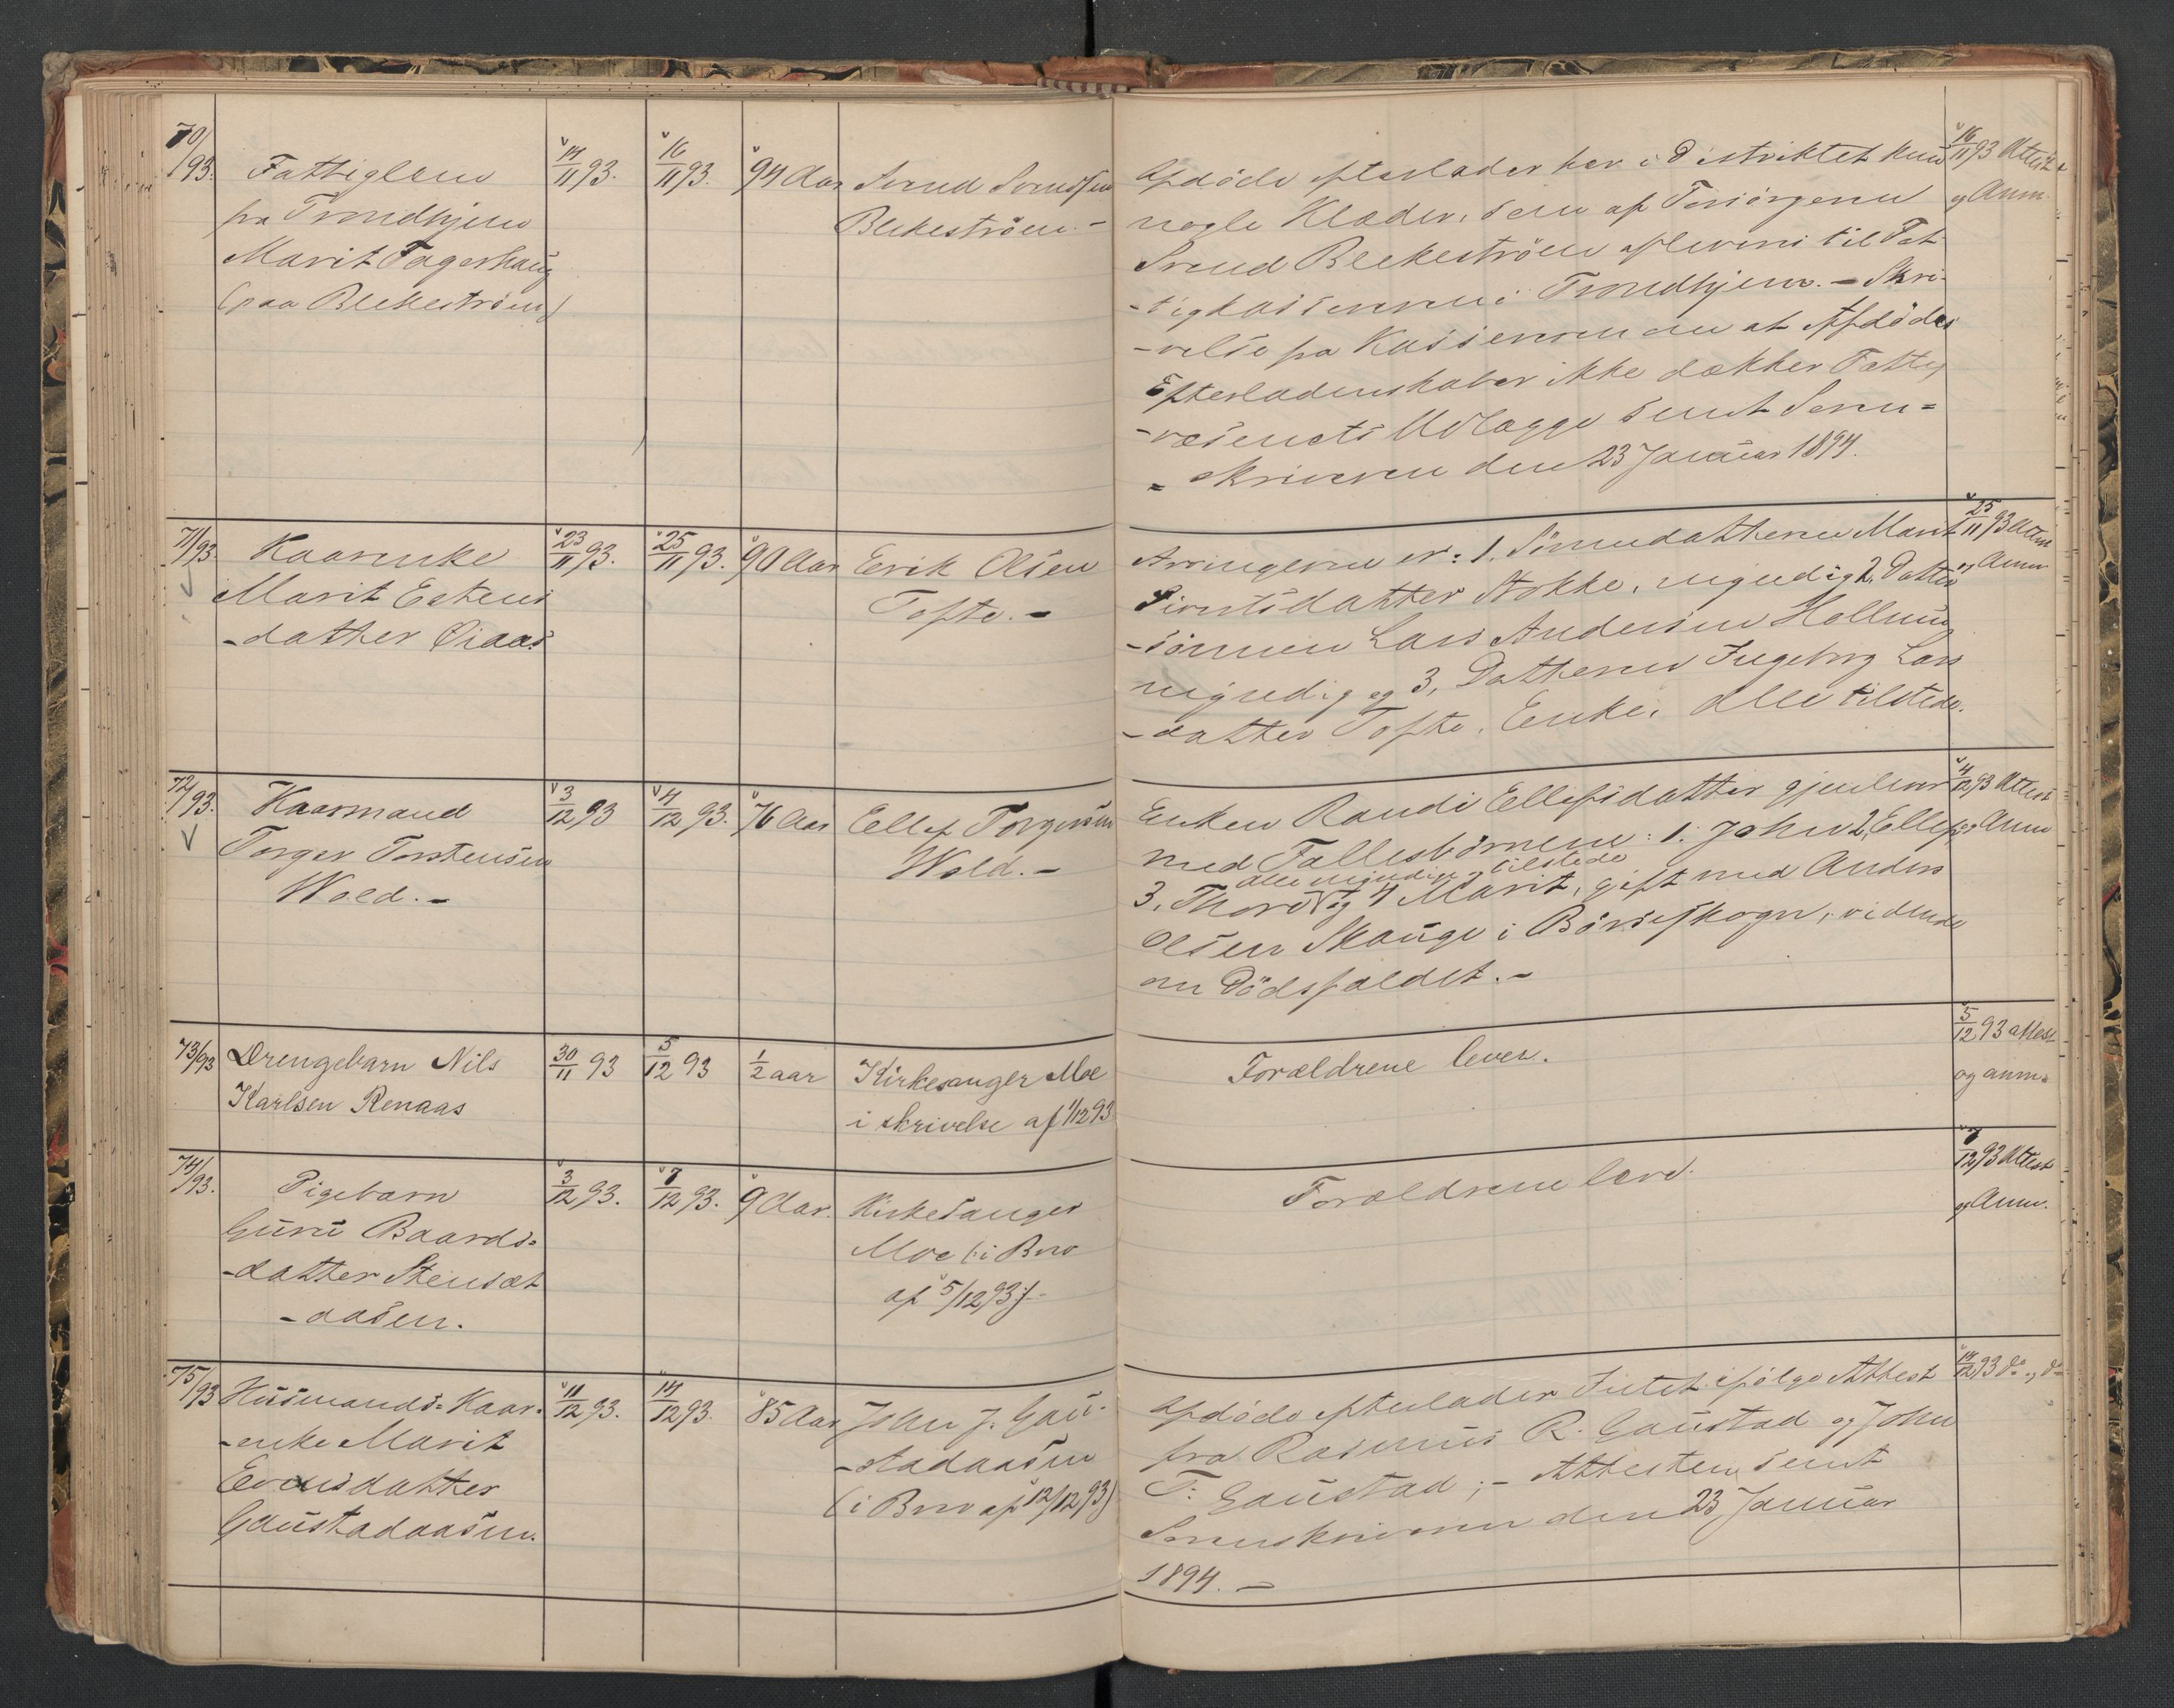 70/93. Fattiglem 14/11 93. 16/11 93. 94 Aar Svend Svendsen
fra Trondhjem Blekeströen.-
Marit Fagerhaug
(paa Blekeströen)
Afdöde efterlader her i Distriktet kun 16/11 93 Attest
nogle Klæder, som af Forsörgeren og Anm.
Svend Blekeströen afleveres til Fat-
-tigkassereren i Trondhjem. - Skri-
-velse fra Kassereren om at Afdödes
Efterladenskaber ikke dækker Fattig
-væsenets Udlægge sendt Soren=
= skriveren den 23 Januar 1894.
71/93. Kaarenke 23/11 93. 25/11 93. 90 Aar Erik Olsen
Marit Estens Tofte.-
-datter Öiaas
Arvingerne er: 1. Sönnedatteren Marit 25/11 93 Attest
Sivertsdatter Stokke, umyndig 2, Datter og Anm
-sönnen Lars Andersen Hollung
umyndig og 3, Datteren Ingeborg Lars
-datter Tofte, Enke; alle tilstede.
72/93. Kaarmand 3/12 93 4/12 93. 76 Aar Ellef Torgersen
Torger Torstensen Wold.-
Wold.-
Enken Randi Ellefsdatter gjenlever 4/12 93 Attest
med Fællesbörnene: 1. John 2, Ellef, og Anm
alle myndige, tilstede
3, Thore og 4 Marit, gift med Anders
Olsen Skauge i Börseskogn, vidende
om Dödsfaldet.-
73/93 Drengebarn Nils 30/11 93 5/12 93 1/2 aar Kirkesanger Moe
Karlsen Renaas i skrivelse af 1/12 93
Forældrene lever. 5/12 93 attest
og anm.
74/93. Pigebarn 3/12 93. 7/12 93. 9 Aar. Kirkesanger
Guru Baards= Moe (: i Brev
-datter Stensæt af 5/12 93 :)-
-aasen.
Forældrene leve. 7/12 93 Attest
og Anm.
75/93 Husmands= Kaar- 11/12 93. 14/12 93. 85 Aar John J. Gau-
-enke Marit -stadaasen
Evensdatter (i Brev af 12/12 93)
Gaustadaasen.
Afdöde efterlader Intet ifölge Attest 14/12 93 do. og do.
fra Rasmus R. Gaustad og John
T: Gaustad; - Attesten sendt
Sorenskriveren den 23, Januar
1894. -